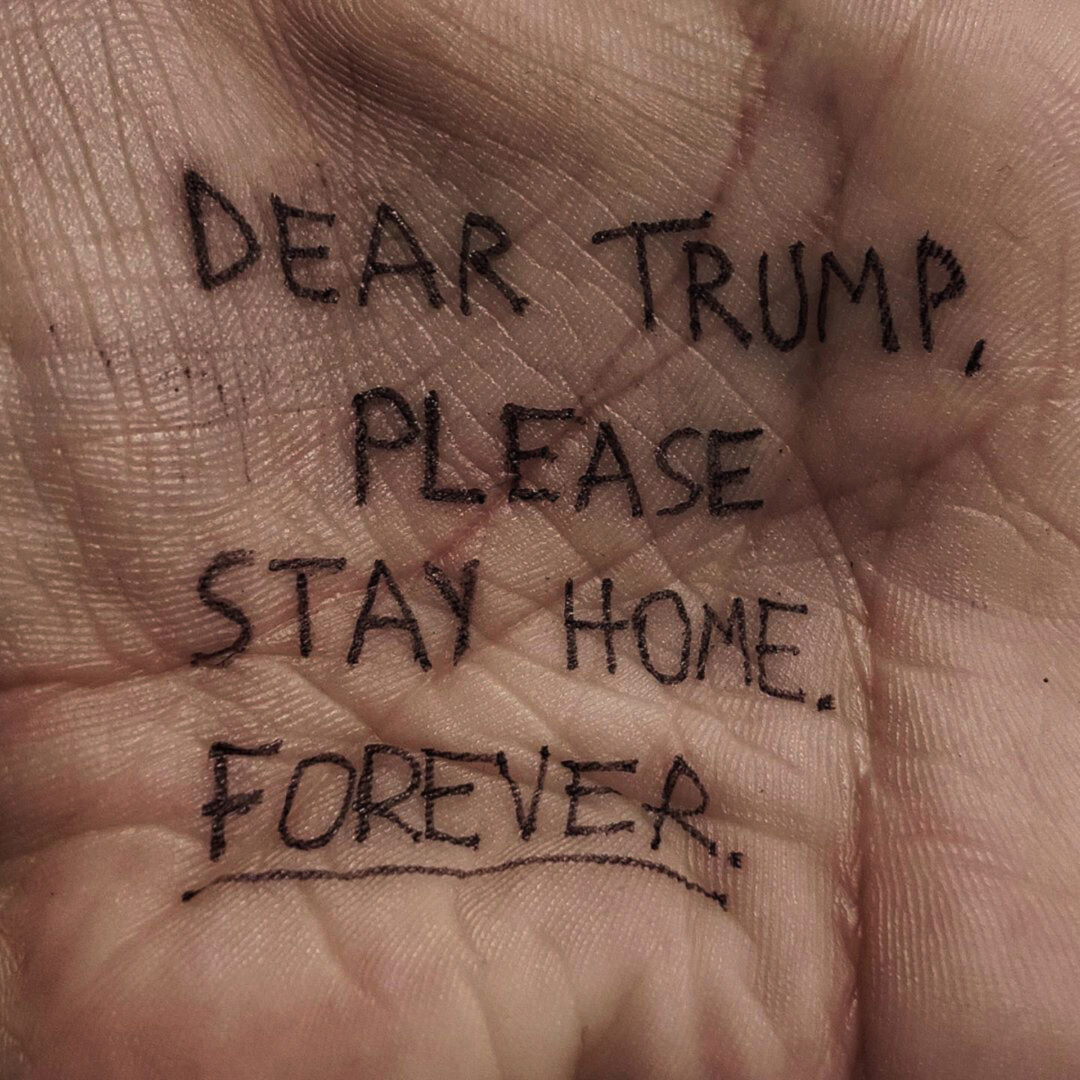 DEAR TRUMP,
PLEASE
STAY HOME.
FOREVER.